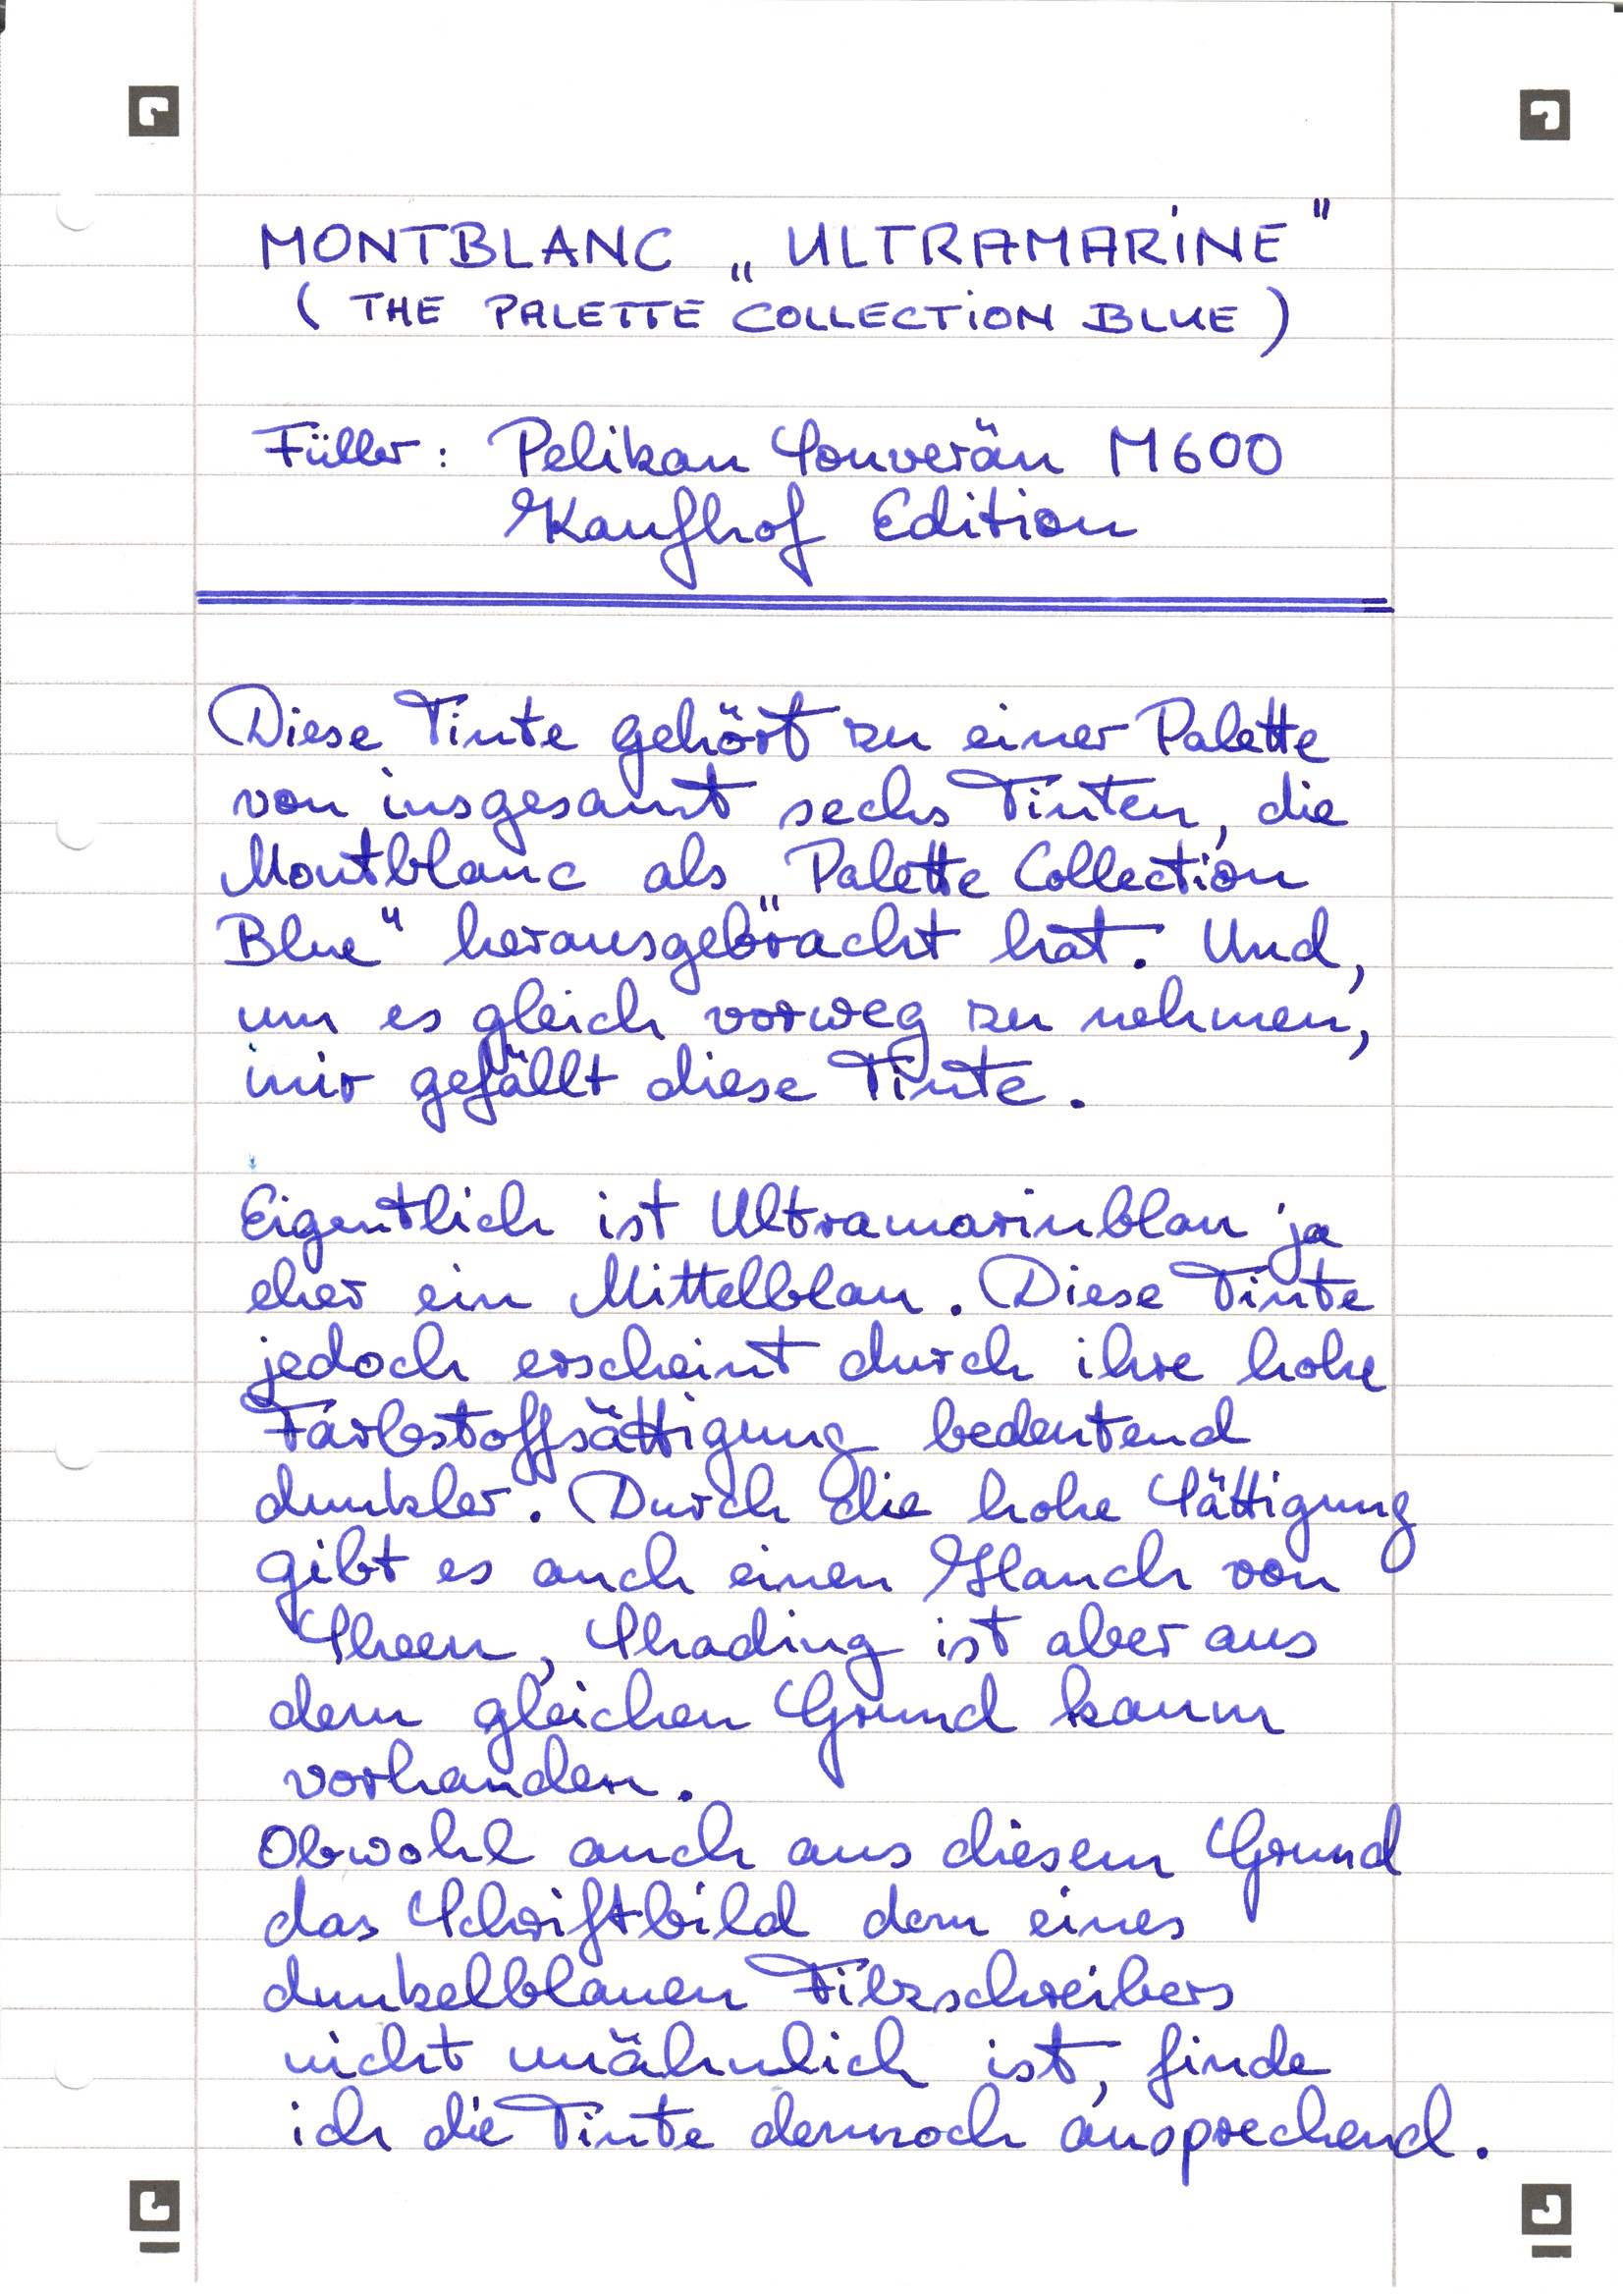 MONTBLANC „ULTRAMARINE"
(THE PALETTE COLLECTION BLUE)
Füller: Pelikan Souverän M600
Kaufhof Edition
Diese Tinte gehört zu einer Palette
von insgesamt sechs Tinten, die
Montblanc als „Palette Collection
Blue" herausgebracht hat. Und,
um es gleich vorweg zu nehmen,
mir gefällt diese Tinte.
Eigentlich ist Ultramarinblau ja
eher ein Mittelblau. Diese Tinte
jedoch erscheint durch ihre hohe
Farbstoffsättigung bedeutend
dunkler. Durch die hohe Sättigung
gibt es auch einen Hauch von
Sheen, Shading ist aber aus
dem gleichen Grund kaum
vorhanden.
Obwohl auch aus diesem Grund
das Schriftbild dem eines
dunkelblauen Filzschreibers
nicht unähnlich ist, finde
ich die Tinte dennoch ansprechend.